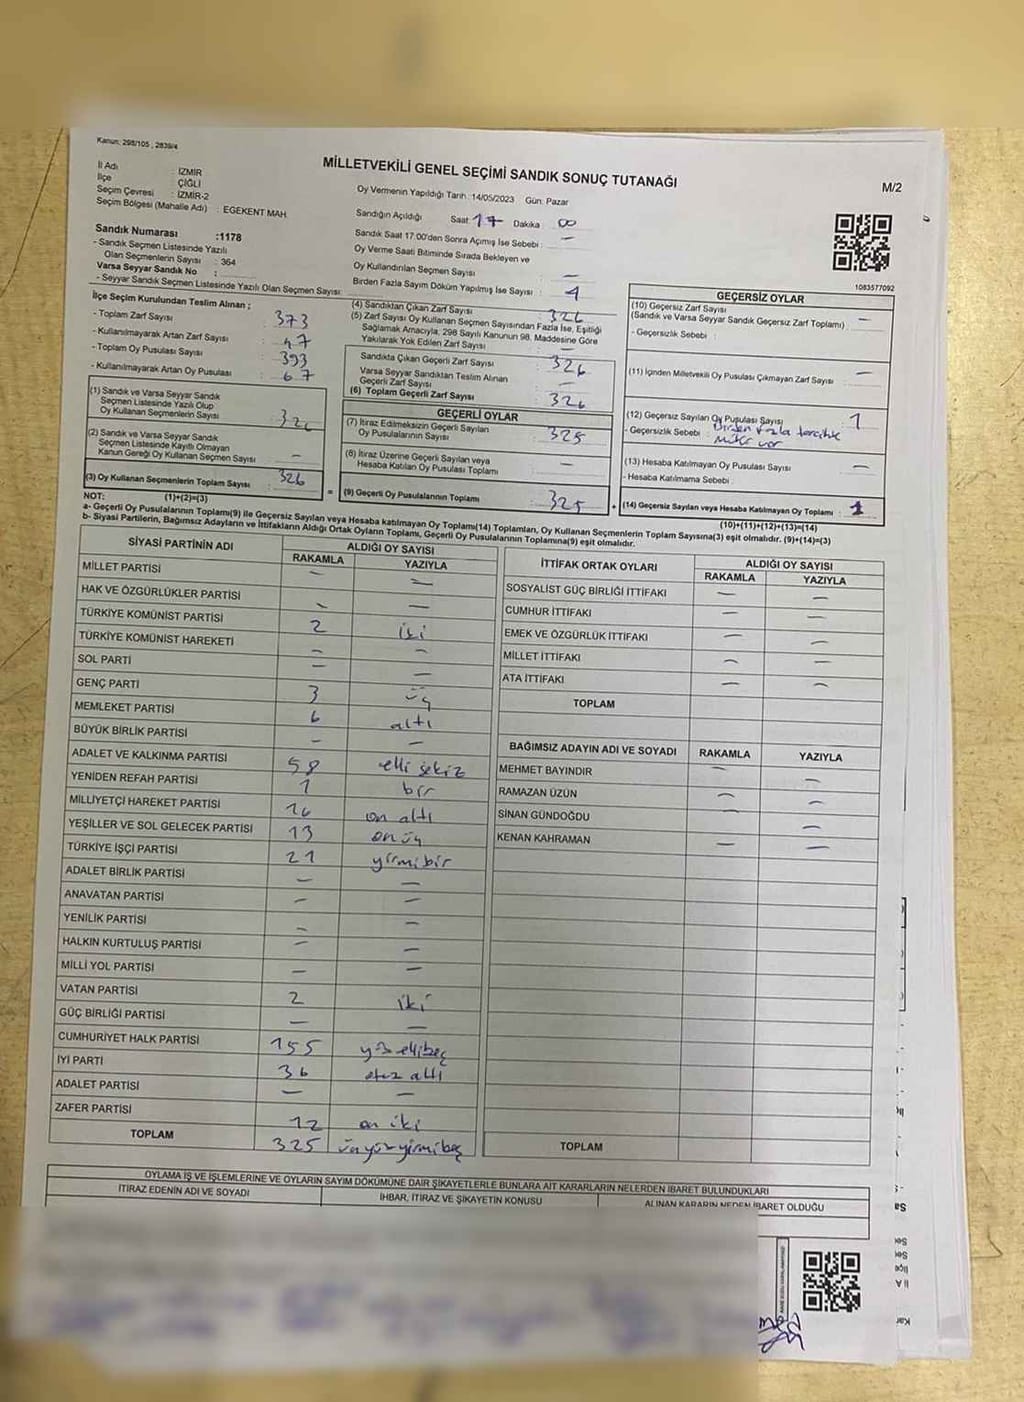 Kanun: 298/105 , 2839/4
MİLLETVEKİLİ GENEL SEÇİMİ SANDIK SONUÇ TUTANAĞI
M/2
İl Adı : İZMİR
İlçe : ÇİĞLİ
Seçim Çevresi : İZMİR-2
Seçim Bölgesi (Mahalle Adı) : EGEKENT MAH.
Oy Vermenin Yapıldığı Tarih :14/05/2023 Gün: Pazar
Sandığın Açıldığı Saat 17 Dakika 00
Sandık Saat 17:00'den Sonra Açılmış İse Sebebi : —
Oy Verme Saati Bitiminde Sırada Bekleyen ve
Oy Kullandırılan Seçmen Sayısı —
Birden Fazla Sayım Döküm Yapılmış İse Sayısı : 4
Sandık Numarası :1178
- Sandık Seçmen Listesinde Yazılı
Olan Seçmenlerin Sayısı : 364
Varsa Seyyar Sandık No :
- Seyyar Sandık Seçmen Listesinde Yazılı Olan Seçmen Sayısı:
1083577092
İlçe Seçim Kurulundan Teslim Alınan ;
- Toplam Zarf Sayısı : 373
- Kullanılmayarak Artan Zarf Sayısı : 47
- Toplam Oy Pusulası Sayısı : 393
- Kullanılmayarak Artan Oy Pusulası : 67
(1) Sandık ve Varsa Seyyar Sandık
Seçmen Listesinde Yazılı Olup
Oy Kullanan Seçmenlerin Sayısı : 326
(2) Sandık ve Varsa Seyyar Sandık
Seçmen Listesinde Kayıtlı Olmayan
Kanun Gereği Oy Kullanan Seçmen Sayısı : —
(3) Oy Kullanan Seçmenlerin Toplam Sayısı : 326
(4) Sandıktan Çıkan Zarf Sayısı : 326
(5) Zarf Sayısı Oy Kullanan Seçmen Sayısından Fazla İse, Eşitliği
Sağlamak Amacıyla, 298 Sayılı Kanunun 98. Maddesine Göre
Yakılarak Yok Edilen Zarf Sayısı : —
Sandıkta Çıkan Geçerli Zarf Sayısı : 326
Varsa Seyyar Sandıktan Teslim Alınan
Geçerli Zarf Sayısı : —
(6) Toplam Geçerli Zarf Sayısı : 326
GEÇERLİ OYLAR
(7) İtiraz Edilmeksizin Geçerli Sayılan
Oy Pusulalarının Sayısı : 325
(8) İtiraz Üzerine Geçerli Sayılan veya
Hesaba Katılan Oy Pusulası Toplamı : —
(9) Geçerli Oy Pusulalarının Toplamı : 325
GEÇERSİZ OYLAR
(10) Geçersiz Zarf Sayısı
(Sandık ve Varsa Seyyar Sandık Geçersiz Zarf Toplamı) : —
- Geçersizlik Sebebi :
(11) İçinden Milletvekili Oy Pusulası Çıkmayan Zarf Sayısı : —
(12) Geçersiz Sayılan Oy Pusulası Sayısı : 1
- Geçersizlik Sebebi : Birden fazla tercihte
mühür var
(13) Hesaba Katılmayan Oy Pusulası Sayısı : —
- Hesaba Katılmama Sebebi :
(14) Geçersiz Sayılan veya Hesaba Katılmayan Oy Toplamı : 1
NOT: (1)+(2)=(3) (10)+(11)+(12)+(13)=(14)
a- Geçerli Oy Pusulalarının Toplamı(9) ile Geçersiz Sayılan veya Hesaba katılmayan Oy Toplamı(14) Toplamları, Oy Kullanan Seçmenlerin Toplam Sayısına(3) eşit olmalıdır. (9)+(14)=(3)
b- Siyasi Partilerin, Bağımsız Adayların ve İttifakların Aldığı Ortak Oyların Toplamı, Geçerli Oy Pusulalarının Toplamına(9) eşit olmalıdır.
SİYASİ PARTİNİN ADI ALDIĞI OY SAYISI
RAKAMLA YAZIYLA
MİLLET PARTİSİ — —
HAK VE ÖZGÜRLÜKLER PARTİSİ — —
TÜRKİYE KOMÜNİST PARTİSİ 2 iki
TÜRKİYE KOMÜNİST HAREKETİ — —
SOL PARTİ — —
GENÇ PARTİ 3 üç
MEMLEKET PARTİSİ 6 altı
BÜYÜK BİRLİK PARTİSİ — —
ADALET VE KALKINMA PARTİSİ 58 elli sekiz
YENİDEN REFAH PARTİSİ 1 bir
MİLLİYETÇİ HAREKET PARTİSİ 16 on altı
YEŞİLLER VE SOL GELECEK PARTİSİ 13 on üç
TÜRKİYE İŞÇİ PARTİSİ 21 yirmi bir
ADALET BİRLİK PARTİSİ — —
ANAVATAN PARTİSİ — —
YENİLİK PARTİSİ — —
HALKIN KURTULUŞ PARTİSİ — —
MİLLİ YOL PARTİSİ — —
VATAN PARTİSİ 2 iki
GÜÇ BİRLİĞİ PARTİSİ — —
CUMHURİYET HALK PARTİSİ 155 yüz elli beş
İYİ PARTİ 36 otuz altı
ADALET PARTİSİ — —
ZAFER PARTİSİ 12 on iki
TOPLAM 325 üçyüzyirmibeş
İTTİFAK ORTAK OYLARI ALDIĞI OY SAYISI
RAKAMLA YAZIYLA
SOSYALİST GÜÇ BİRLİĞİ İTTİFAKI — —
CUMHUR İTTİFAKI — —
EMEK VE ÖZGÜRLÜK İTTİFAKI — —
MİLLET İTTİFAKI — —
ATA İTTİFAKI — —
TOPLAM
BAĞIMSIZ ADAYIN ADI VE SOYADI RAKAMLA YAZIYLA
MEHMET BAYINDIR — —
RAMAZAN ÜZÜN — —
SİNAN GÜNDOĞDU — —
KENAN KAHRAMAN — —
TOPLAM
OYLAMA İŞ VE İŞLEMLERİNE VE OYLARIN SAYIM DÖKÜMÜNE DAİR ŞİKAYETLERLE BUNLARA AİT KARARLARIN NELERDEN İBARET BULUNDUKLARI
İTİRAZ EDENİN ADI VE SOYADI İHBAR, İTİRAZ VE ŞİKAYETİN KONUSU ALINAN KARARIN NEDEN İBARET OLDUĞU